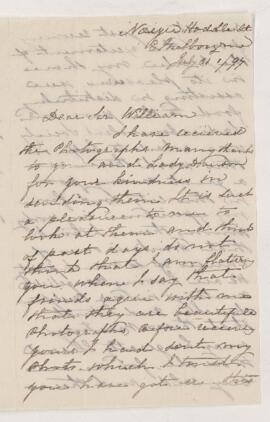 Hoddle St
July 31st / 97
Dear Sir William
I have received
the Photographs Many thanks
to you and Lady
for your kindness in
sending them It is such
a pleasure to me to
look at them and think
of past days do not
think that I am flattering
you when I say that
friends agree with me
that they are beautiful
Photographs before receiving
yours I had sent my
Photo which I trust
you have got as